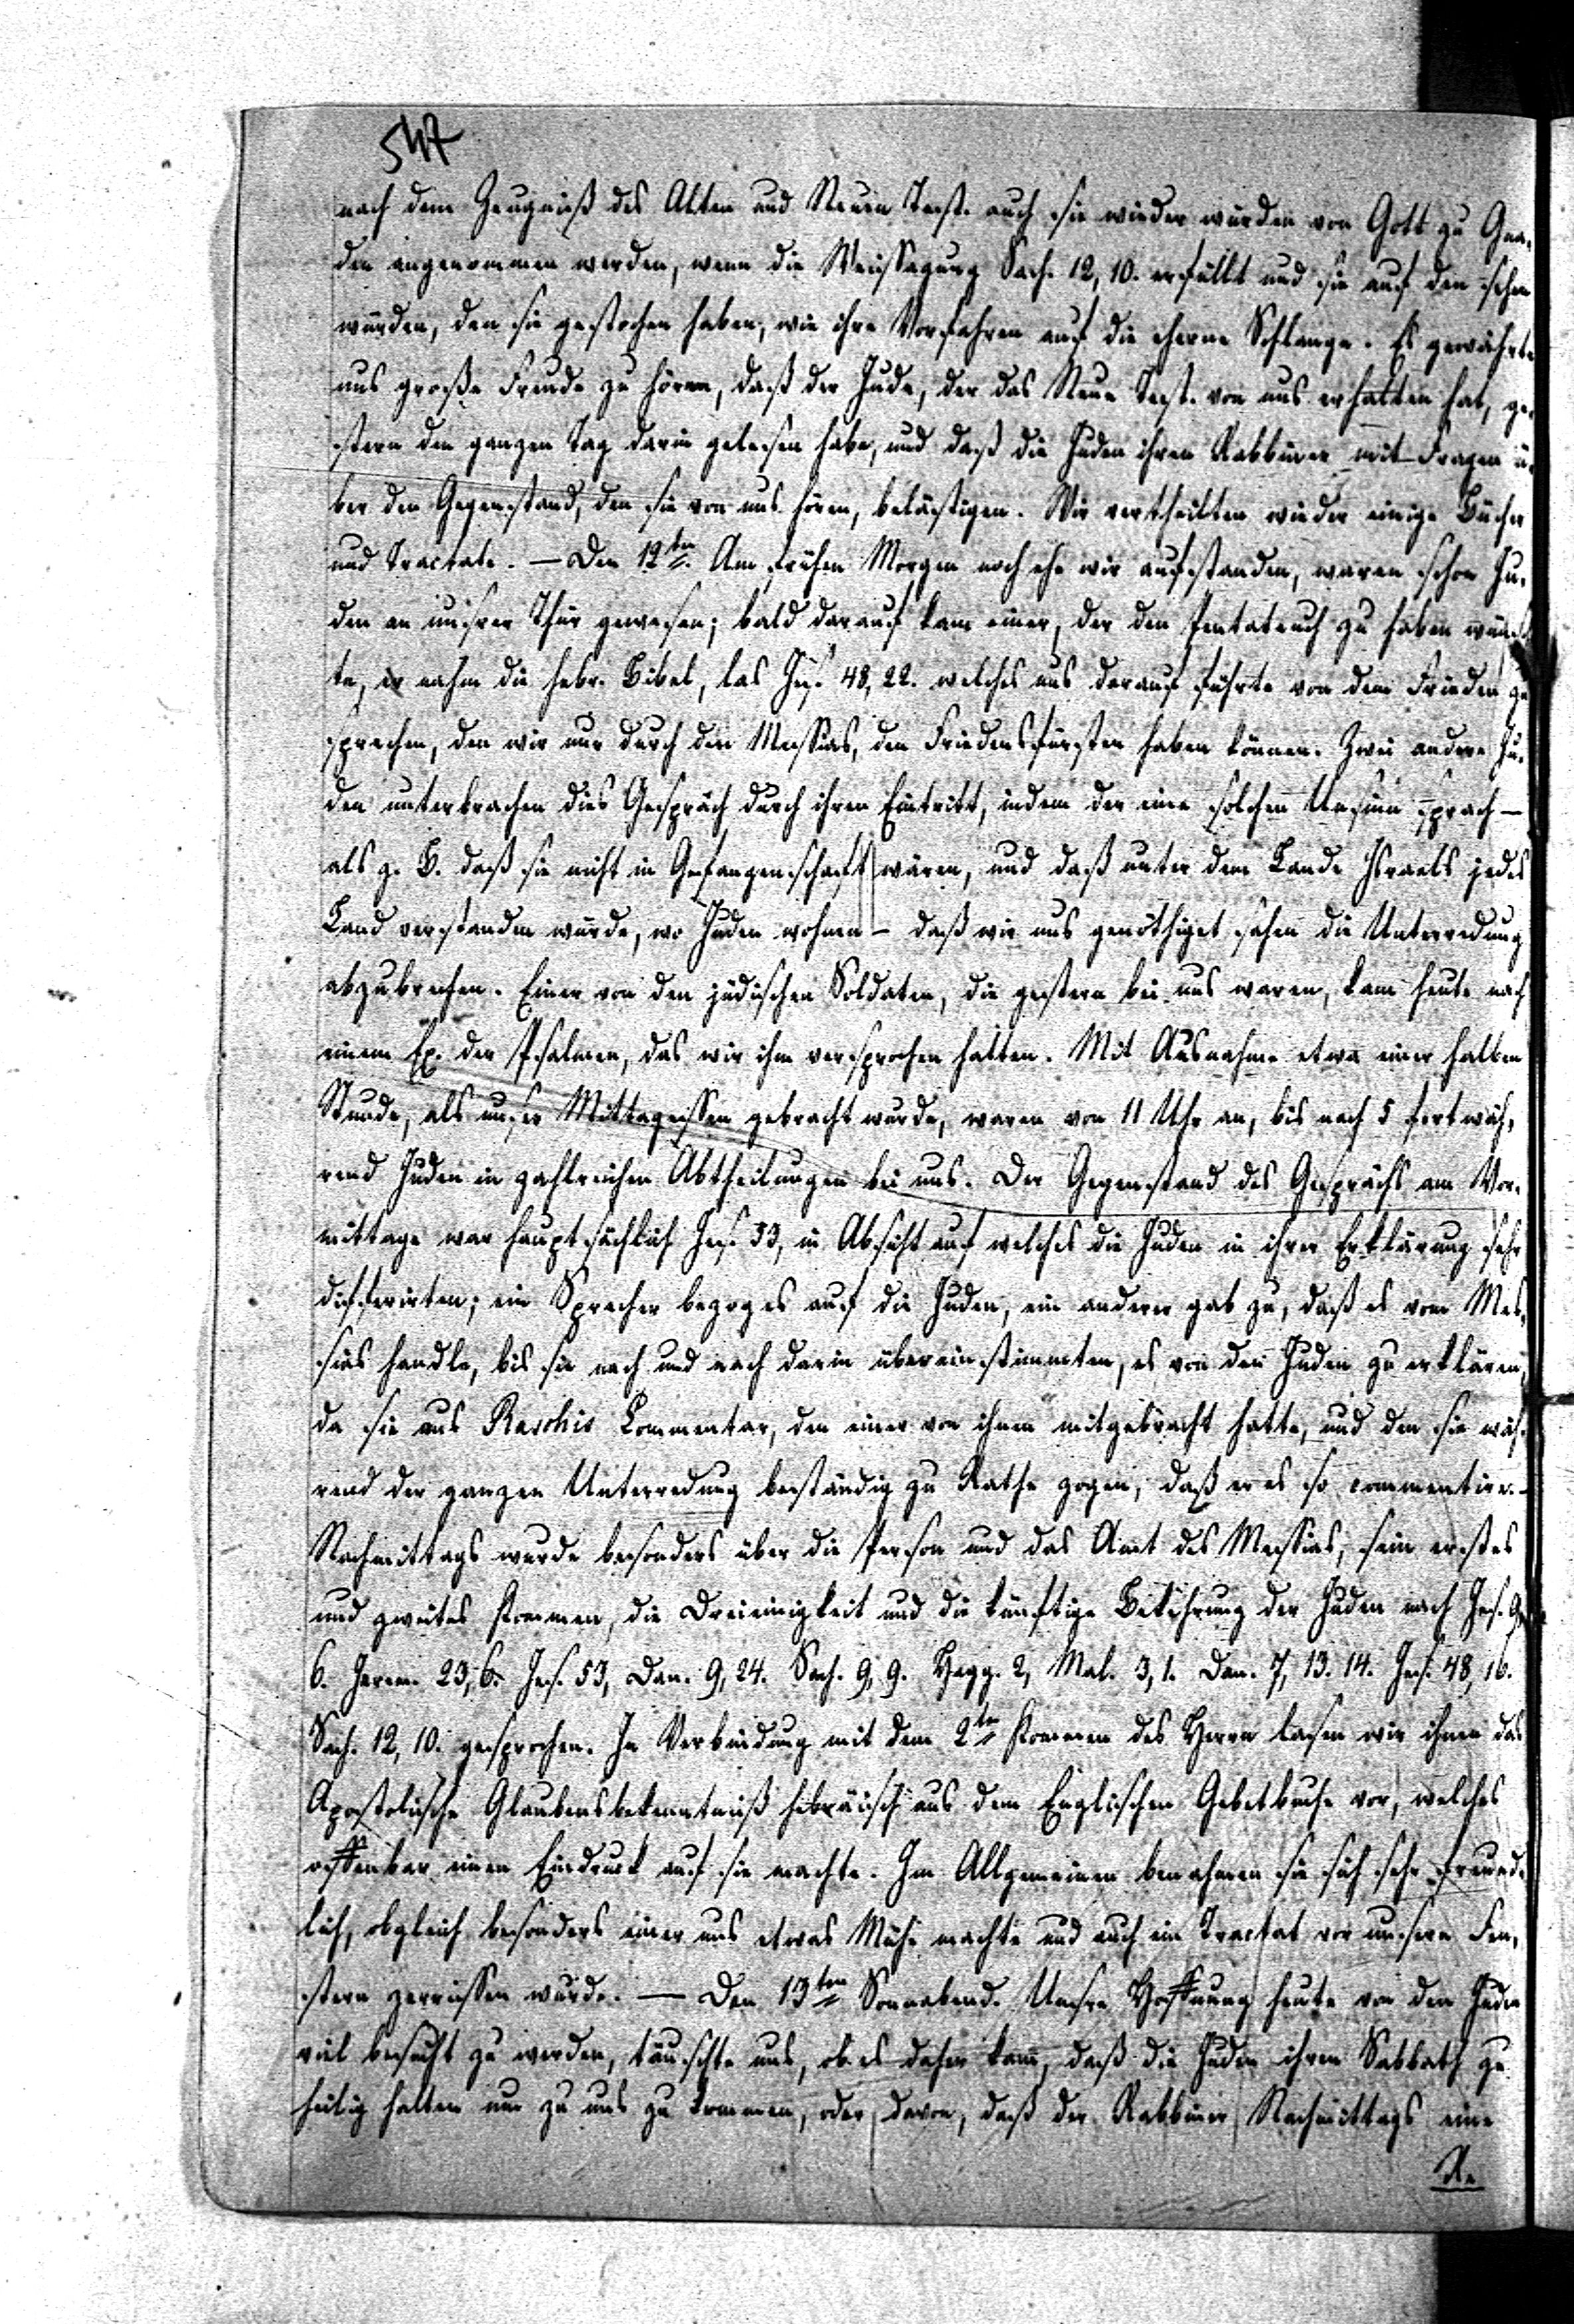 547
nach dem Zeugniß des Alten und Neuen Test. auch sie wieder würden von Gott zu Gna-
den angenommen werden, wenn die Weissagung Sach. 12, 10. erfüllt und sie auf den sehen
würden, den sie gestochen haben, wie ihre Vorfahren auf die eherne Schlange. Es gewährte
uns große Freude zu hören, daß der Jude, der das Neue Test. von uns erhalten hat, ge-
stern den ganzen Tag darin gelesen habe, und daß die Juden ihren Rabbiner mit Fragen ü-
ber den Gegenstand, den sie von uns hören, belästigen. Wir vertheilten wieder einige Bücher
und Tractate. — Den 12ten. Am frühen Morgen noch ehe wir aufstanden, waren schon Ju-
den an unsrer Thür gewesen; bald darauf kam einer, der den Pentateuch zu haben wünsch-
te, er nahm die hebr. Bibel, las Jes. 48, 22. welches uns darauf führte von dem Frieden zu
sprechen, den wir nur durch den Messias, den Friedensfürsten haben können. Zwei andere Ju-
den unterbrachen dies Gespräch durch ihren Eintritt, indem der eine solchen Unsinn sprach —
als z. B. daß sie nicht in Gefangenschaft wären, und daß unter dem Lande Israels jedes
Land verstanden würde, wo Juden wohnen — daß wir uns genöthiget sahen die Unterredung
abzubrechen. Einer von den jüdischen Soldaten, die gestern bei uns waren, kam heute nach
einem Ex. der Psalmen, das wir ihm versprochen hatten. Mit Ausnahme etwa einer halben
Stunde, als unser Mittagessen gebracht wurde, waren von 11 Uhr an, bis nach 5 fortwäh-
rend Juden in zahlreichen Abtheilungen bei uns. Der Gegenstand des Gesprächs am Vor-
mittage war hauptsächlich Jes. 53, in Absicht auf welches die Juden in ihrer Erklärung sehr
differirten; ein Sprecher bezog es auf die Juden, ein anderer gab zu, daß es vom Mes-
sias handle, bis sie nach und nach darin übereinstimmten, es von den Juden zu erklären,
da sie aus Raschis Commentar, den einer von ihnen mitgebracht hatte, und den sie wäh-
rend der ganzen Unterredung beständig zu Rathe zogen, daß er es so commentire. —
Nachmittags wurde besonders über die Person und das Amt des Messias, sein erstes
und zweites Kommen, die Dreieinigkeit und die künftige Bekehrung der Juden nach Jes. 9,
6. Jerem. 23, 6. Jes. 53, Dan. 9, 24. Sach. 9, 9. Hagg. 2, Mal. 3, 1. Dan. 7, 13. 14. Jes. 48, 16.
Sach. 12, 10. gesprochen. In Verbindung mit dem 2ten Kommen des Herrn lasen wir ihnen das
Apostolische Glaubensbekenntniß hebräisch aus dem Englischen Gebetbuche vor, welches
offenbar einen Eindruck auf sie machte. Im Allgemeinen benahmen sie sich sehr freund-
lich, obgleich besonders einer uns etwas Mühe machte und auch ein Tractat vor unsern Fen-
stern zerrissen wurde. — Den 13ten Sonnabend. Unsre Hoffnung heute von den Juden
viel besucht zu werden, täuschte uns, ob es daher kam, daß die Juden ihren Sabbath zu
heilig halten um zu uns zu kommen, oder davon, daß der Rabbiner Nachmittags eine